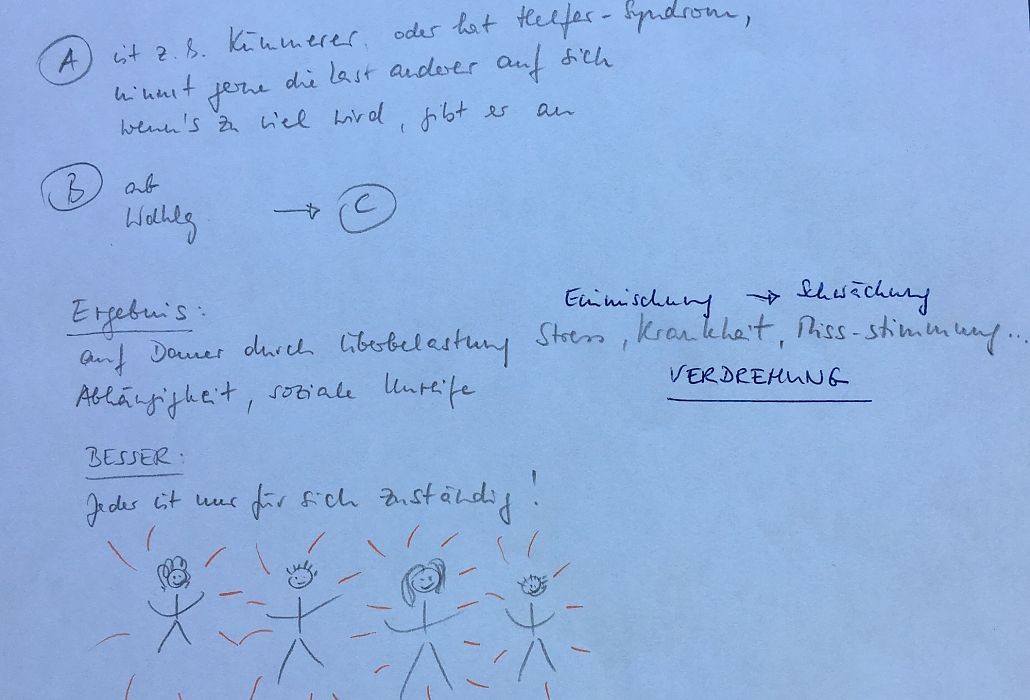 A ist z.B. Kümmerer, oder hat Helfer-Syndrom,
nimmt gerne die Last anderer auf sich
wenn's zu viel wird, gibt er es an
B ab
→ C
Ergebnis:
Einmischung → Schwächung
auf Dauer durch Überbelastung Stress, Krankheit, Miss-stimmung...
Abhängigkeit, soziale Unreife
VERDREHUNG
BESSER:
Jeder ist nur für sich zuständig!